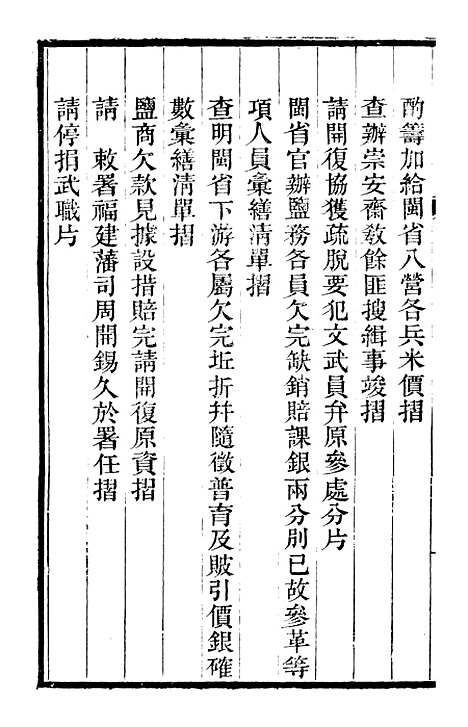 酌籌加給閩省八營各兵米價摺
查辦崇安齋敎餘匪搜緝事竣摺
請開復協獲疏脫要犯文武員弁原參處分片
閩省官辦鹽務各員欠完缺銷賠課銀兩分別已故參革等
項人員彙繕淸單摺
查明閩省下游各屬欠完坵折幷隨徵普育及賍引價銀確
數彙繕淸單摺
鹽商欠款見據設措賠完請開復原資摺
請　敕署福建藩司周開錫久於署任摺
請停捐武職片